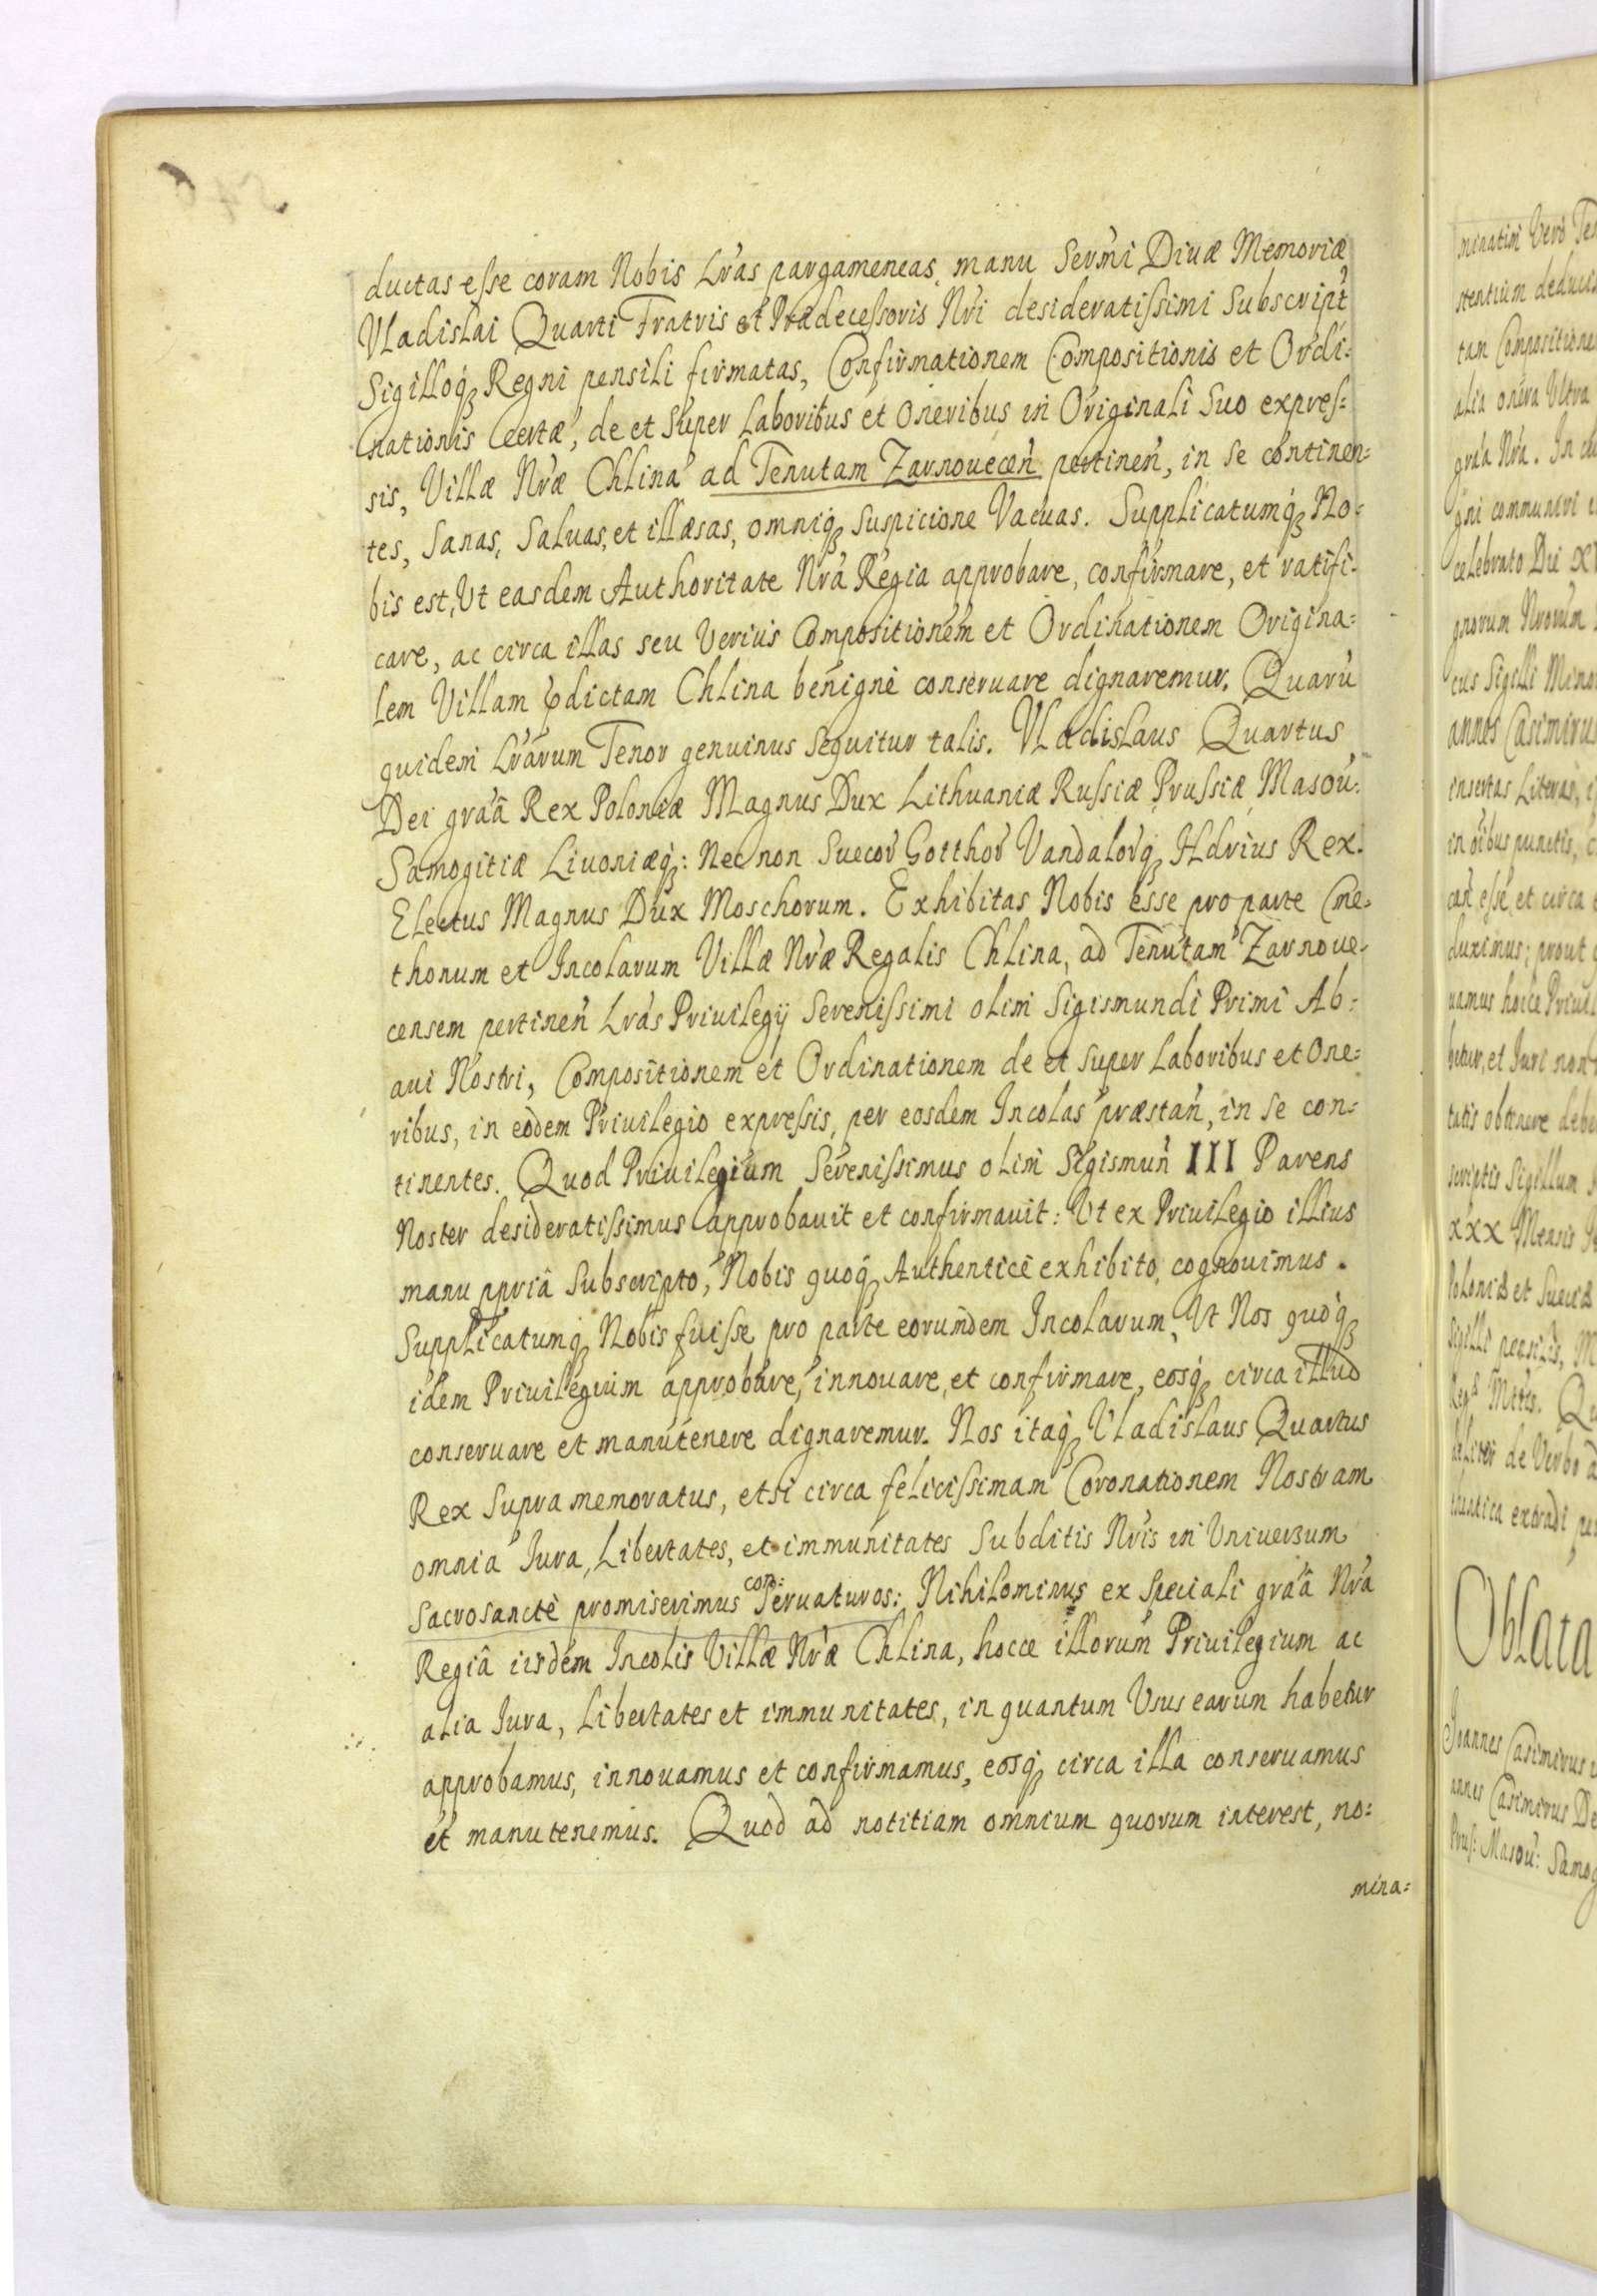 ductas esse coram Nobis Lr̃as pargameneas, manu Serm̃i Diuæ Memoriæ
Vladislai Quarti Fratris et Prædecessoris Nr̃i desideratissimi Subscript̃
Sigilloq́ꝫ Regni pensili firmatas, Confirmationem Compositionis et Ordi=
nationis Certæ, de et super Laboribus et Oneribus in Originali Suo expres=
sis, Villæ Nr̃æ Chlina ad Tenutam Zarnouecen̄ pertinen̄, in se continen=
tes, Sanas, Saluas, et illæsas, omniq́ꝫ suspicione Vacuas. Supplicatumq́ꝫ No=
bis est, Vt easdem Authoritate Nr̃a Regia approbare, confirmare, et ratifi=
care, ac circa illas seu Verius Compositionem et Ordinationem Origina=
lem Villam p̃dictam Chlina benignè conseruare dignaremur. Quarũ
quidem Lr̃arum Tenor genuinus sequitur talis. Vladislaus Quartus
Dei gr̃aâ Rex Poloniæ Magnus Dux Lithuaniæ Russiæ Prussiæ Masou̇:
Samogitiæ Liuoniæq́ꝫ: Nec non Suecor̃ Gotthor̃ Vandalor̃q́ꝫ Hdrius Rex.
Electus Magnus Dux Moschorum. Exhibitas Nobis esse pro parte Cme=
thonum et Incolarum Villæ Nr̃æ Regalis Chlina, ad Tenutam Zarnoue=
censem pertinen̄ Lr̃as Priuilegij Serenissimi olim Sigismundi Primi Ab=
aui Nostri, Compositionem et Ordinationem de et super Laboribus et One=
ribus, in eodem Priuilegio expressis, per eosdem Incolas præstan̄, in se con=
tinentes. Quod Priuilegium Serenissimus olim Sigismun̄ III Parens
Noster desideratissimus approbauit et confirmauit: Vt ex Priuilegio illius
manu ppriâ Subscripto, Nobis quoq́ꝫ Authenticè exhibito, cognouimus.
Supplicatumq́ꝫ Nobis fuisse pro parte eorundem Incolarum, Vt Nos quoq́ꝫ
idem Priuilegium approbare, innouare, et confirmare, eosq́ꝫ circa illud
conseruare et manutenere dignaremur. Nos itaq́ꝫ Vladislaus Quartus
Rex Supra memoratus, etsi circa felicissimam Coronationem Nostram
omnia Jura, Libertates, et immunitates Subditis Nr̃is in Vniuersum
Sacrosanctè promiserimus con: Seruaturos: Nihilominus ex Speciali gr̃aâ Nr̃a
Regiâ iisdem Incolis Villæ Nr̃æ Chlina, hocce illorum Priuilegium ac
alia Jura, Libertates et immunitates, in quantum Vsus earum habetur
approbamus, innouamus et confirmamus, eosq́ꝫ circa illa conseruamus
et manutenemus. Quod ad notitiam omnium quorum interest, no=
mina=
minatim Verò Te
stentium deducen
tam Compositione
alia onera Vltra
gr̃aa Nr̃a. In
gni communiri
celebrato Die X
gnorum Nrorum
cus Sigilli Mino
annes Casimirus
insertas Literas,
in oibus punctis,
esse, et circa
duximus; prout
uamus hocce Priuil
betur, et Juri non
tatis obtinere debe
scriptis Sigillum
xxx Mensis
Poloniæ et Sueciæ
Sigilli pensilis, M
Mttis. Qu
de Verbo a
extradi per
Oblata
Joannes Casimirus
annes Casimirus De
Prus: Masou̇: Samog